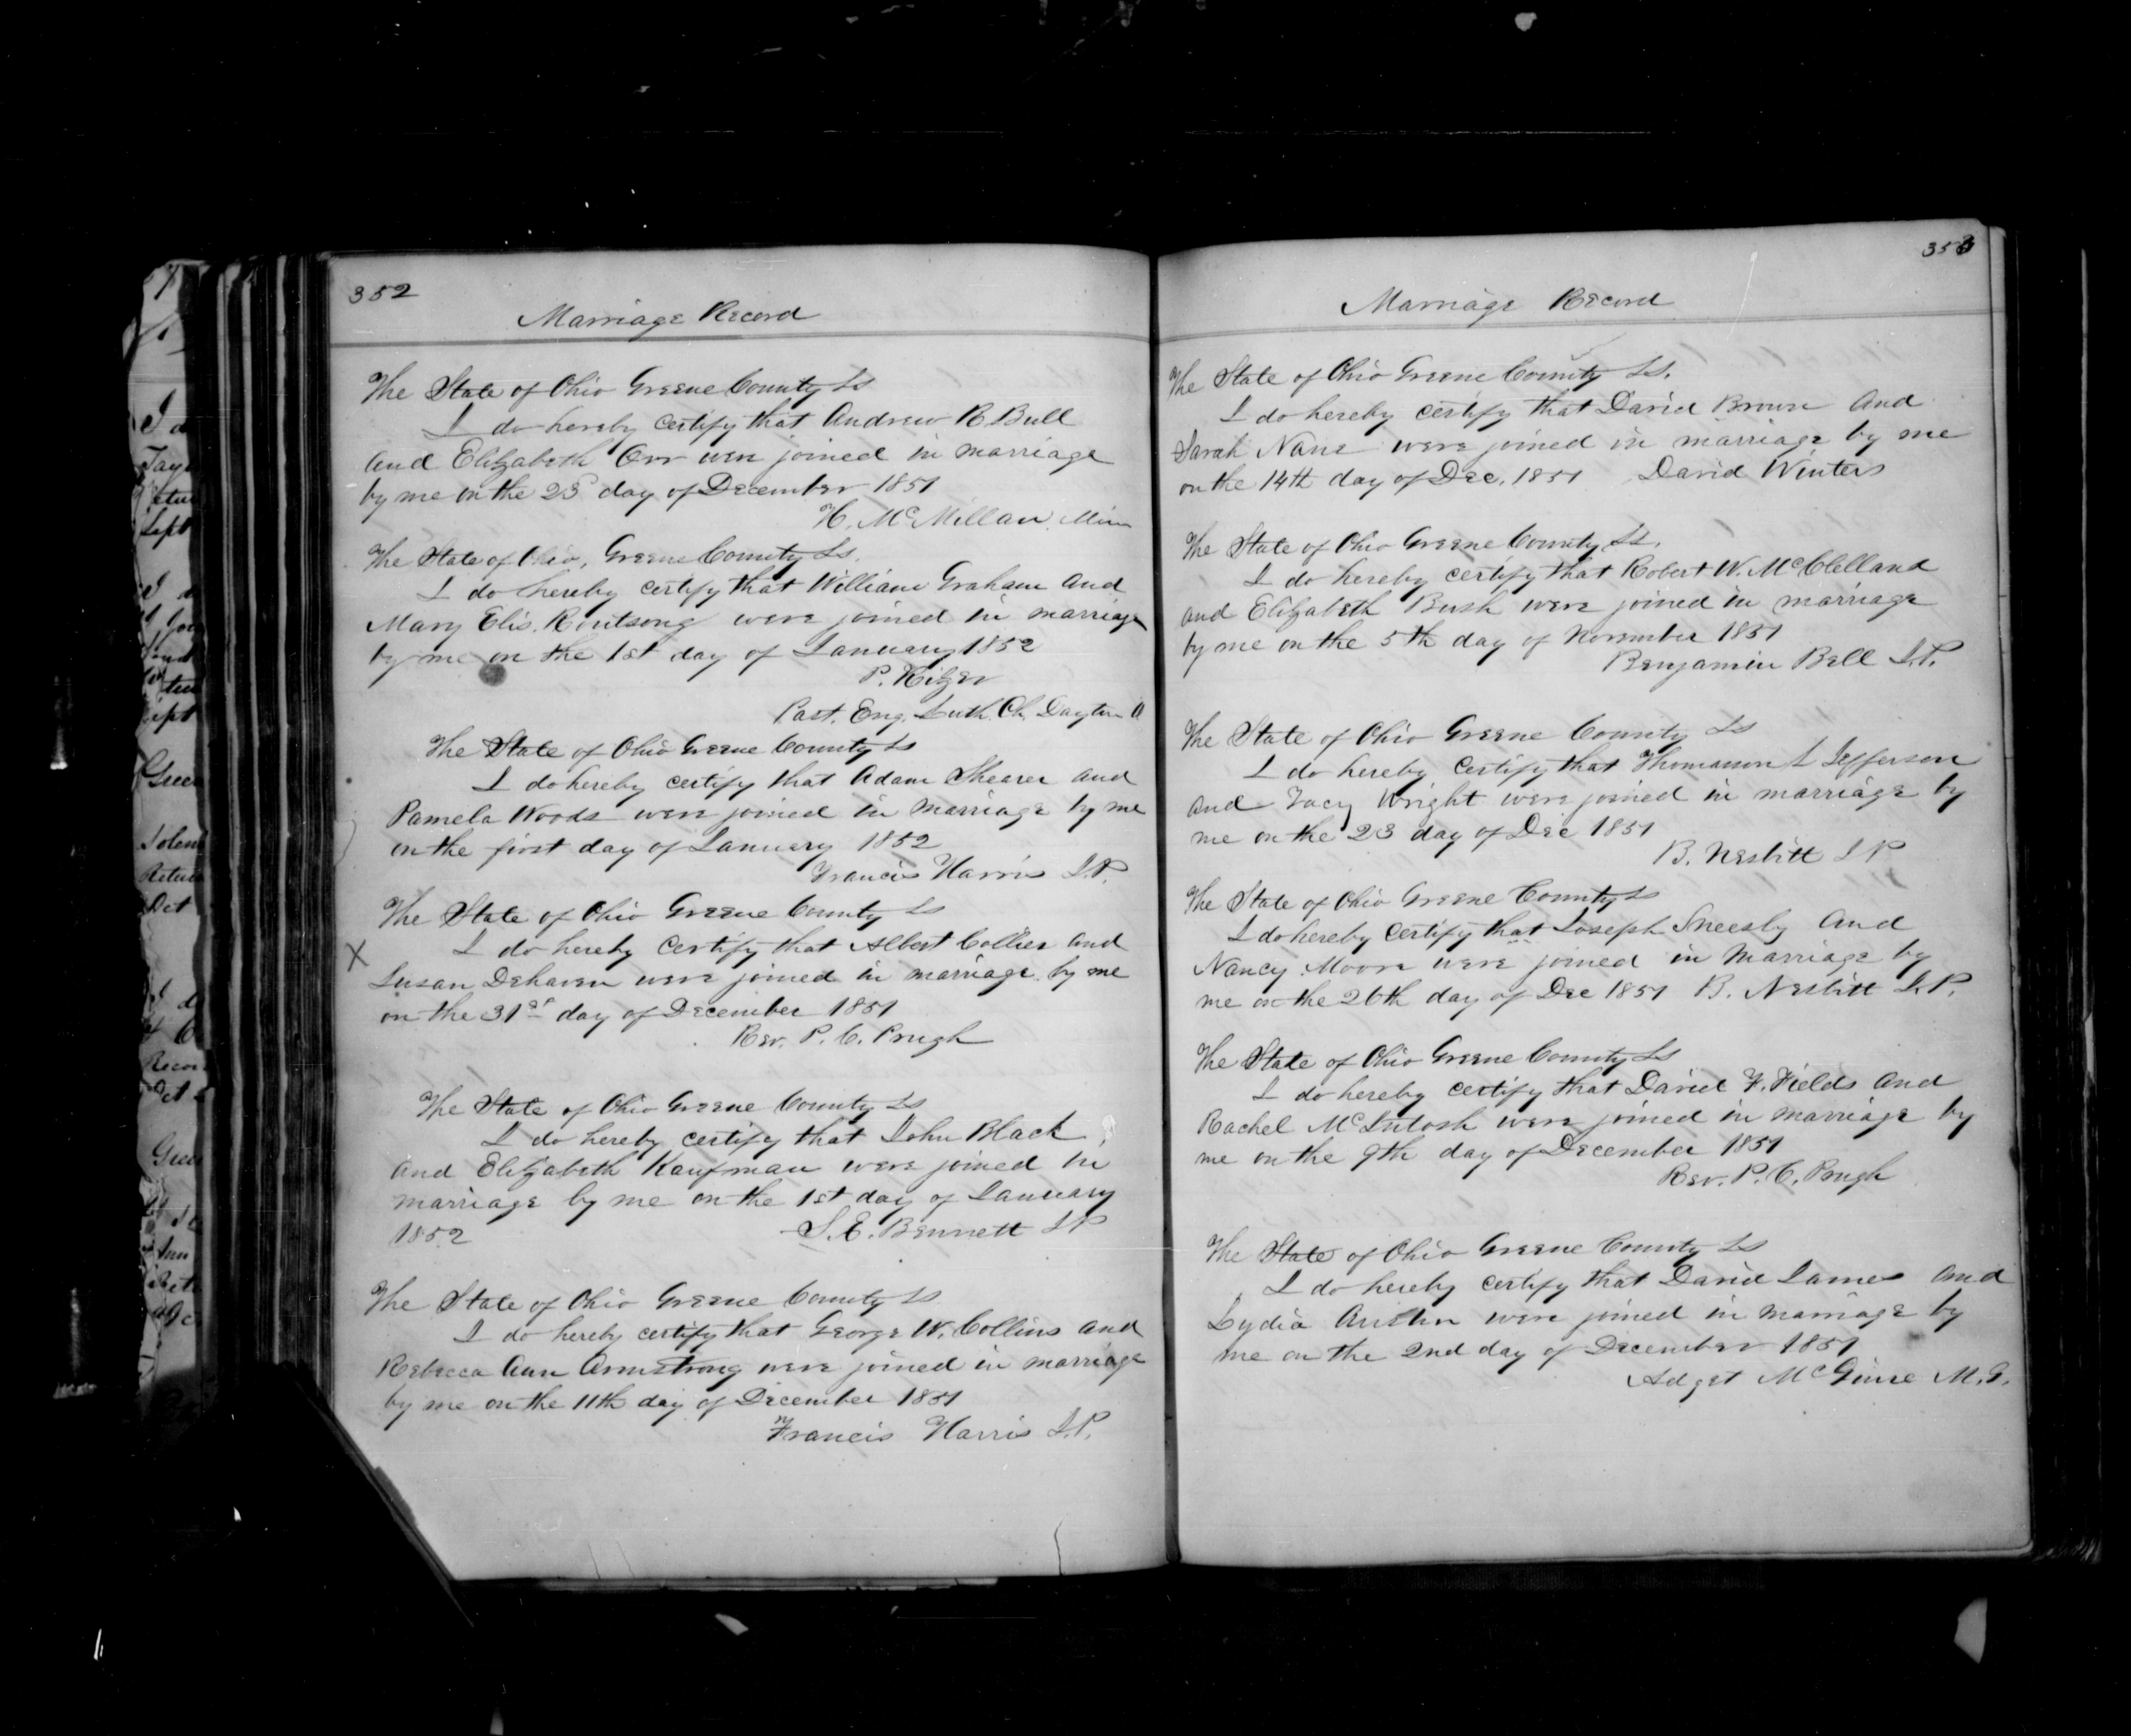 352
Marriage Record
The State of Ohio Greene County Ss
I do hereby certify that Andrew R. Bull
and Elizabeth Orr were joined in marriage
by me on the 23d day of December 1851
H. McMillan. Min
The State of Ohio, Greene County Ss.
I do hereby certify that William Graham and
Mary Elis. Routsong were joined in marriage
by me on the 1st day of January 1852
P. Rizer
Past. Eng. Luth. Ch. Dayton O
The State of Ohio Greene County Ss
I do hereby certify that Adam Shearer and
Pamela Woods were joined in marriage by me
on the first day of January 1852
Francis Harris J.P.
The State of Ohio Greene County Ss
X I do hereby certify that Albert Collier and
Susan Dehaven were joined in marriage by me
on the 31st day of December 1851
Rev. P. C. Prugh
The State of Ohio Greene County Ss
I do hereby certify that John Black
and Elizabeth Kaufman were joined in
marriage by me on the 1st day of January
1852 S. E. Bennett J P
The State of Ohio Greene County Ss
I do hereby certify that George W. Collins and
Rebecca Ann Armstrong were joined in marriage
by me on the 11th day of December 1851
Francis Harris J.P.
353
Marriage Record
The State of Ohio Greene County Ss.
I do hereby certify that David Brown and
Sarah Nane were joined in marriage by me
on the 14th day of Dec. 1851 David Winters
The State of Ohio Greene County Ss.
I do hereby certify that Robert W. McClelland
and Elizabeth Bush were joined in marriage
by me on the 5th day of November 1851
Benjamin Bell J.P.
The State of Ohio Greene County Ss
I do hereby certify that Thomasson L Jefferson
and Tacy Wright were joined in marriage by
me on the 23 day of Dec 1851
B. Nesbitt J P
The State of Ohio Greene County Ss
I do hereby certify that Joseph Sneesby and
Nancy Moore were joined in marriage by
me on the 26th day of Dec 1851 B. Nesbitt J.P.
The State of Ohio Greene County Ss
I do hereby certify that David F. Fields and
Rachel McIntosh were joined in marriage by
me on the 9th day of December 1851
Rev. P. C. Prugh
The State of Ohio Greene County Ss
I do hereby certify that David James and
Lydia Austin were joined in marriage by
me on the 2nd day of December 1851
Adget McGuire M.G.